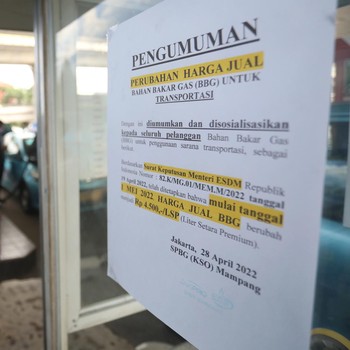 PENGUMUMAN
PERUBAHAN HARGA JUAL
BAHAN BAKAR GAS (BBG) UNTUK
TRANSPORTASI
Dengan ini diumumkan dan disosialisasikan
kepada seluruh pelanggan Bahan Bakar Gas
(BBG) untuk penggunaan sarana transportasi, sebagai
berikut.
Berdasarkan Surat Keputusan Menteri ESDM Republik
Indonesia Nomor : 82.K/MG.01/MEM.M/2022 tanggal
2022, telah ditetapkan bahwa mulai tanggal
1 MEI 2022 HARGA JUAL BBG berubah
menjadi Rp 4.500,-/LSP (Liter Setara Premium).
Jakarta, 28 April 2022
SPBG (KSO) Mampang